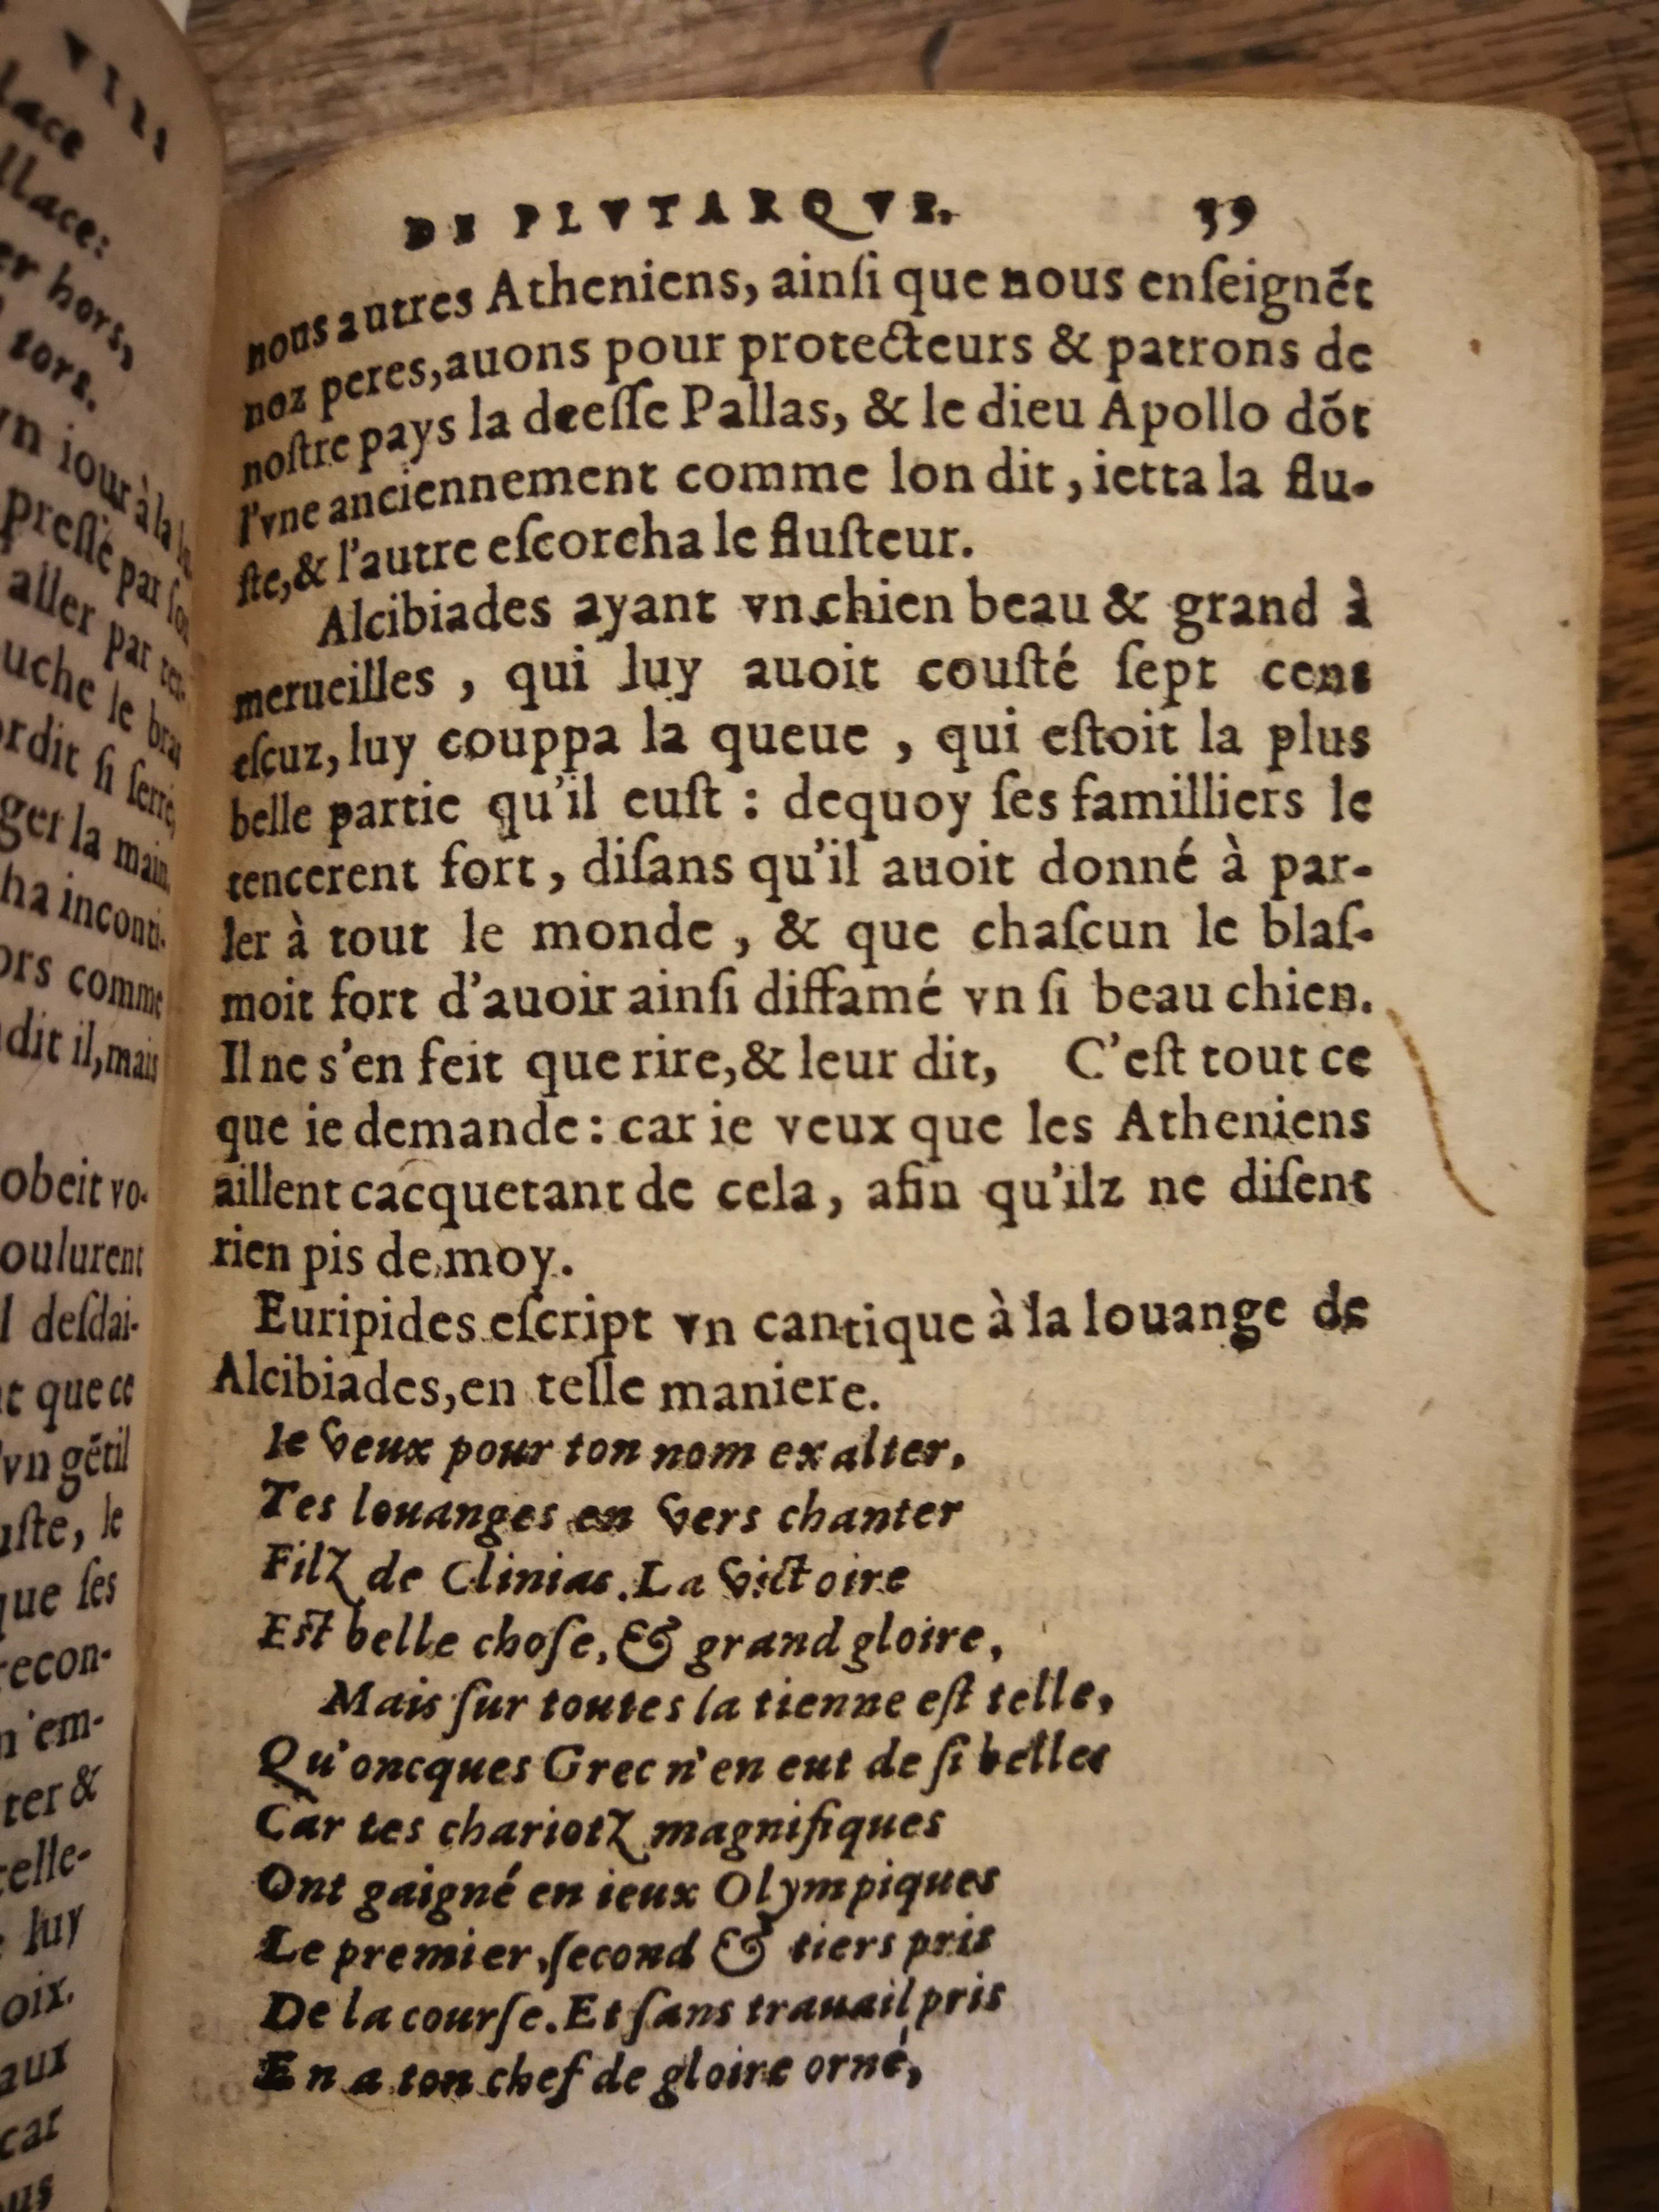 VIES
lace
llace:
er hors,
tors.
vn iour à la
pressé par
aller par
uche le bras
ordit si serré,
ger la main
ha inconti-
ors comme
dit il, mais
obeit vo-
oulurent
l desdai-
t que ce
vn gētil
uste, le
que ses
recon-
n'em-
ter &
telle-
luy
oix.
aux
car
DE PLVTARQVE. 39
nous autres Atheniens, ainſi que nous enſeignēt
noz peres, auons pour protecteurs & patrons de
noſtre pays la deeſſe Pallas, & le dieu Apollo dōt
l'vne anciennement comme lon dit, ietta la flu-
ſte, & l'autre eſcorcha le fluſteur.
Alcibiades ayant vn chien beau & grand à
merueilles, qui luy auoit couſté ſept cens
eſcuz, luy couppa la queue, qui eſtoit la plus
belle partie qu'il euſt : dequoy ſes familliers le
tencerent fort, diſans qu'il auoit donné à par-
ler à tout le monde, & que chaſcun le blaſ-
moit fort d'auoir ainſi diffamé vn ſi beau chien.
Il ne s'en feit que rire, & leur dit, C'eſt tout ce
que ie demande : car ie veux que les Atheniens
aillent cacquetant de cela, afin qu'ilz ne diſent
rien pis de moy.
Euripides eſcript vn cantique à la louange de
Alcibiades, en telle maniere.
Ie veux pour ton nom exalter,
Tes louanges en vers chanter
Filz de Clinias. La victoire
Eſt belle choſe, & grand gloire,
Mais ſur toutes la tienne eſt telle,
Qu'oncques Grec n'en eut de ſi belles
Car tes chariotz magnifiques
Ont gaigné en ieux Olympiques
Le premier, ſecond & tiers pris
De la courſe. Et ſans trauail pris
En a ton chef de gloire orné,